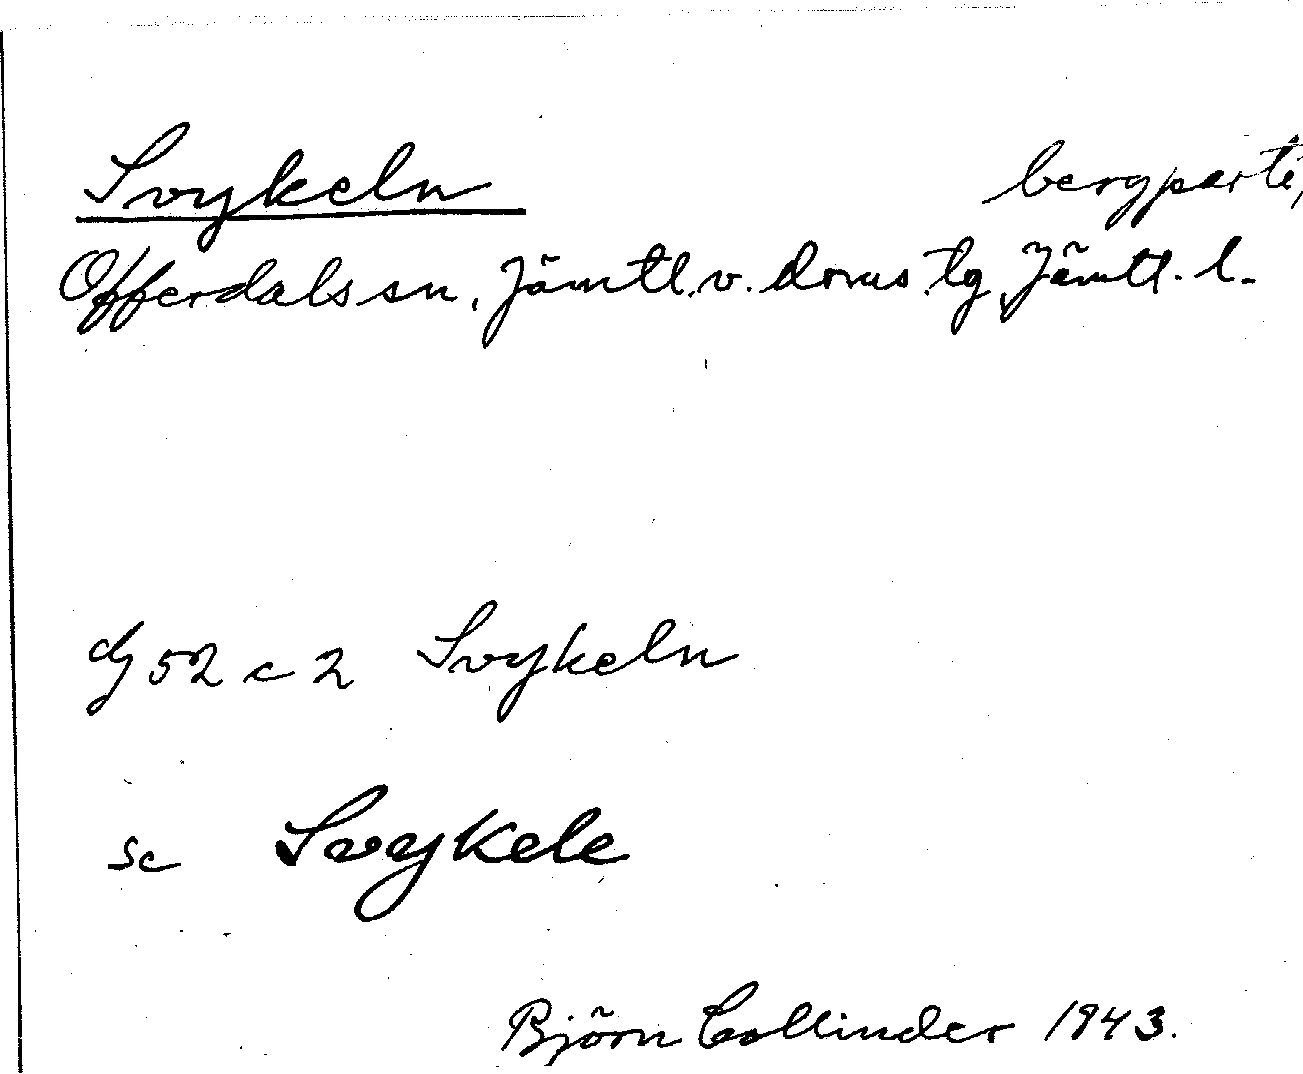 Svykeln bergparti,
Offerdals sn, Jämtl. v. doms. tg, Jämtl. l.
dj 52 c 2 Svykeln
sc Svykele
Björn Collinder 1943.